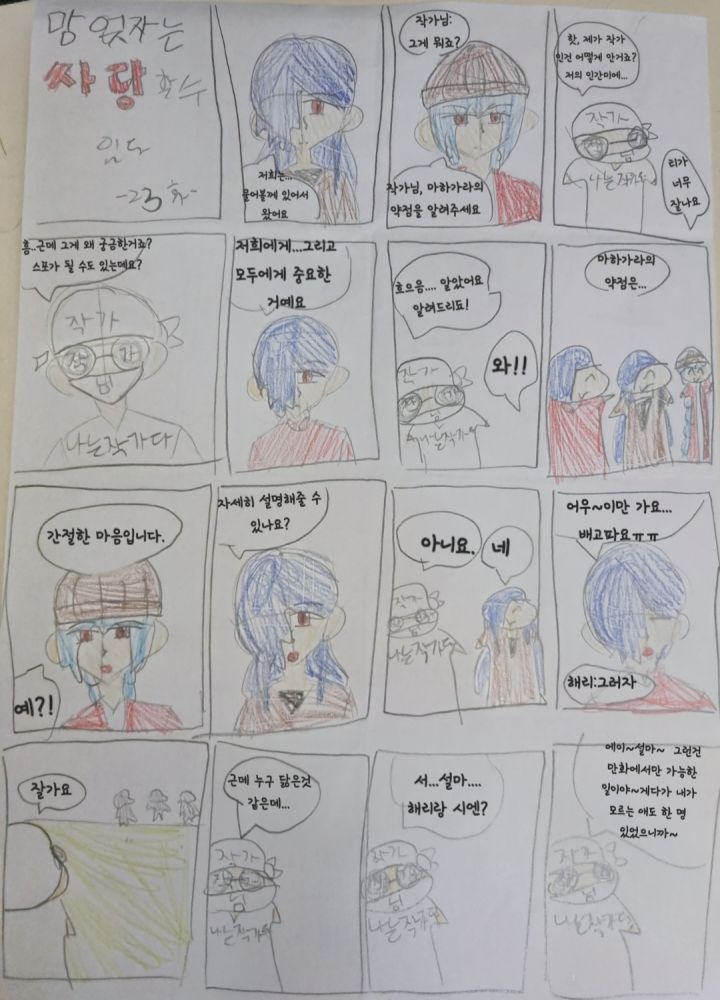 망 잆자는
싸당 호수
입드
-23화-
저희는...
물어볼께 있어서
왔어요
작가님:
그게 뭐죠?
작가님, 마하가라의
약점을 알려주세요
핫, 제가 작가
인건 어떻게 안거죠?
저의 인간미에...
작가
님
나는작가다
티가
너무
잘나요
흠..근데 그게 왜 궁금한거죠?
스포가 될 수도 있는데요?
작가
작 가
님
나는작가다
저희에게...그리고
모두에게 중요한
거예요
흐으음.... 알았어요
알려드리됴!
작가
님
나는작가다
와!!
마하가라의
약점은...
간절한 마음입니다.
예?!
자세히 설명해줄 수
있나요?
아니요.
네
작가
님
나는작가다
어우~이만 가요...
배고파요ㅠㅠ
해리:그러자
잘가요
근데 누구 닮은것
같은데...
작가
님
나는작가다
서...설마....
해리랑 시엔?
작가
님
나는작가다
에이~설마~ 그런건
만화에서만 가능한
일이야~게다가 내가
모르는 애도 한 명
있었으니까~
작가
님
나는작가다